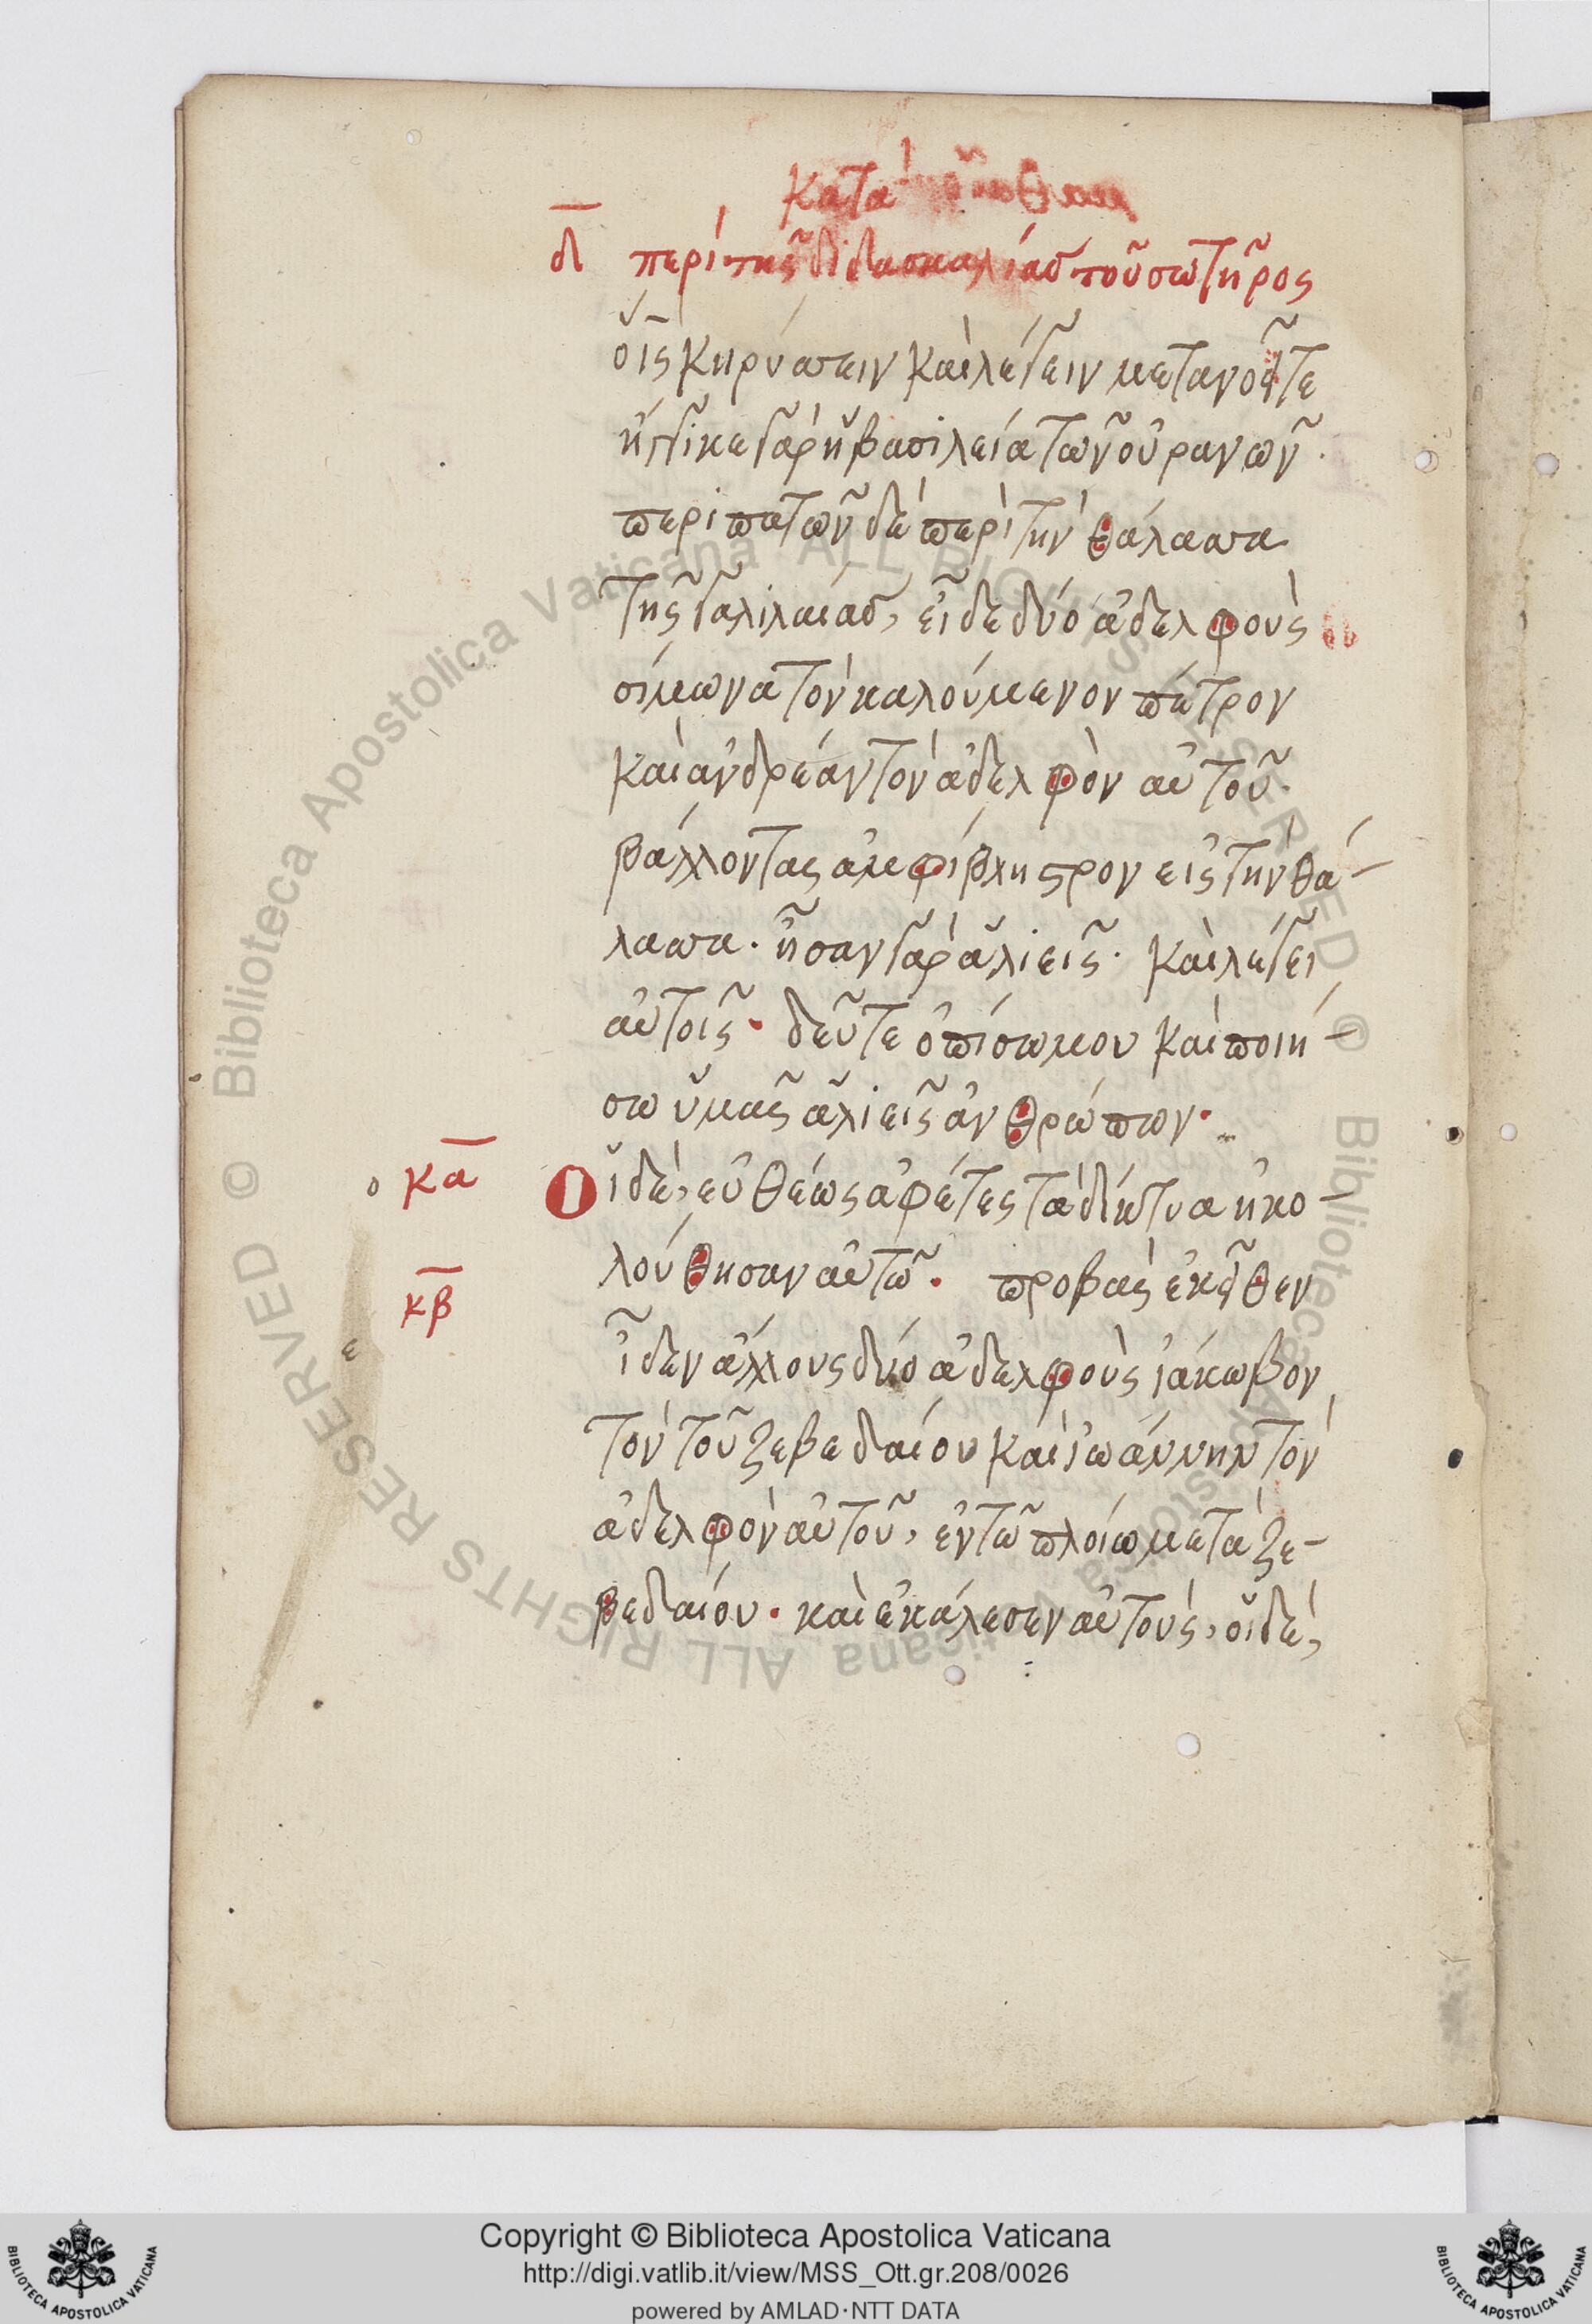 κατὰ
δ περὶ τῆς διδασκαλίας τοῦ σωτῆρος
ὁ ἰς κηρύσσειν καὶ λέγειν μετανοεῖτε
ἤγγικε γὰρ ἡ βασιλεία τῶν οὐρανῶν.
περιπατῶν δὲ περὶ τὴν θάλασσα
τῆς γαλιλαίας, εἶδε δύο ἀδελφοὺς
σίμωνα τὸν καλούμενον πέτρον
καὶ ἀνδρέαν τὸν ἀδελφὸν αὐτοῦ.
βάλλοντας ἀμφίβληστρον εἰς τὴν θά-
λασσα. ἦσαν γὰρ ἁλιεῖς. καὶ λέγει
αὐτοῖς. δεῦτε ὀπίσω μου καὶ ποιή-
σω ὑμᾶς ἁλιεῖς ἀνθρώπων.
κα Οἱ δὲ, εὐθέως ἀφέτες τὰ δίκτυα ἠκο-
λούθησαν αὐτῶ. προβὰς ἐκεῖθεν
κβ
ε
ἶδεν ἄλλους δύο ἀδελφοὺς ἰάκωβον
τὸν τοῦ ζεβεδαίου καὶ ἰωάννην τὸν
ἀδελφὸν αὐτοῦ, ἐν τῶ πλοίω μετὰ ζε-
βεδαίου. καὶ ἐκάλεσεν αὐτούς, οἱ δὲ,
Copyright © Biblioteca Apostolica Vaticana
http://digi.vatlib.it/view/MSS_Ott.gr.208/0026
powered by AMLAD·NTT DATA
BIBLIOTECA APOSTOLICA VATICANA
BIBLIOTECA APOSTOLICA VATICANA